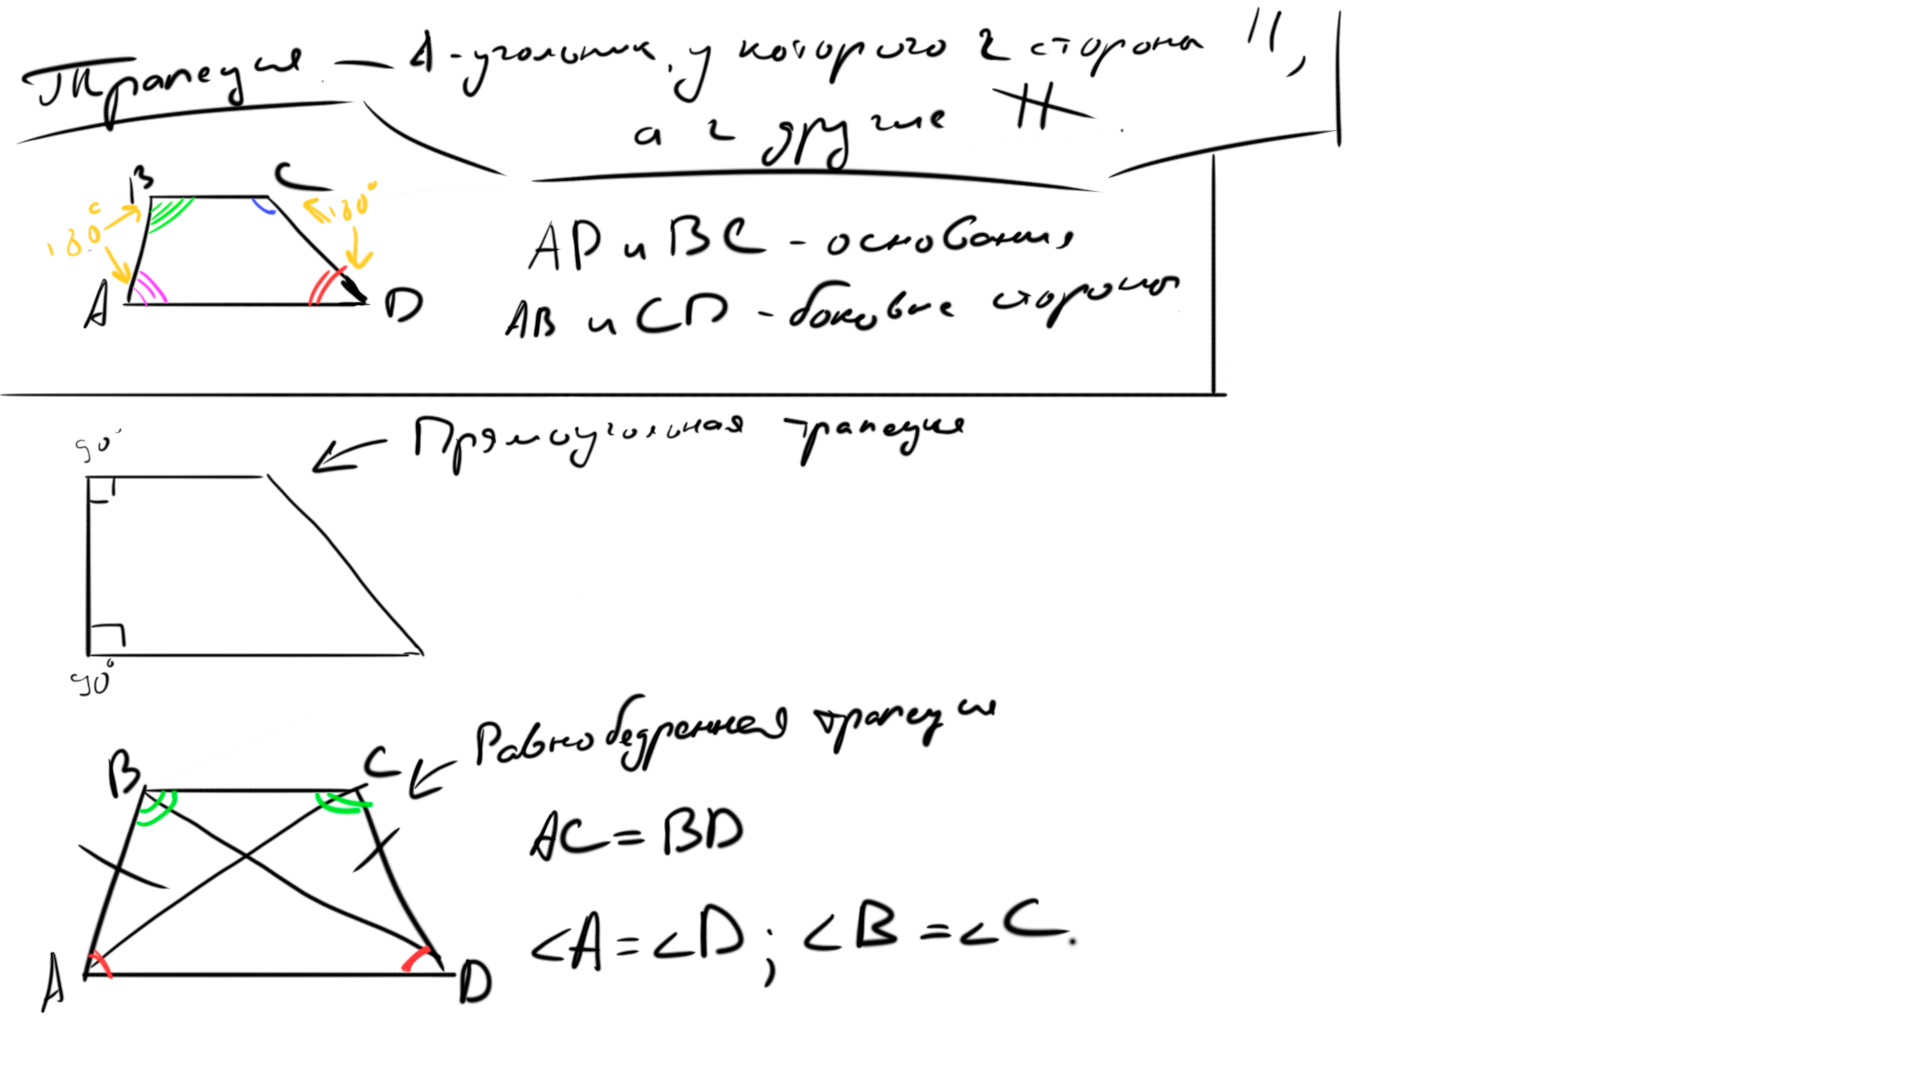 Трапеция — 4-угольник, у которого 2 стороны ||,
а 2 другие ∦.
B C
180° 180°
A D
AD и BC - основания
AB и CD - боковые стороны
Прямоугольная трапеция
90°
90°
Равнобедренная трапеция
B C
AC = BD
∠A = ∠D ; ∠B = ∠C.
A D